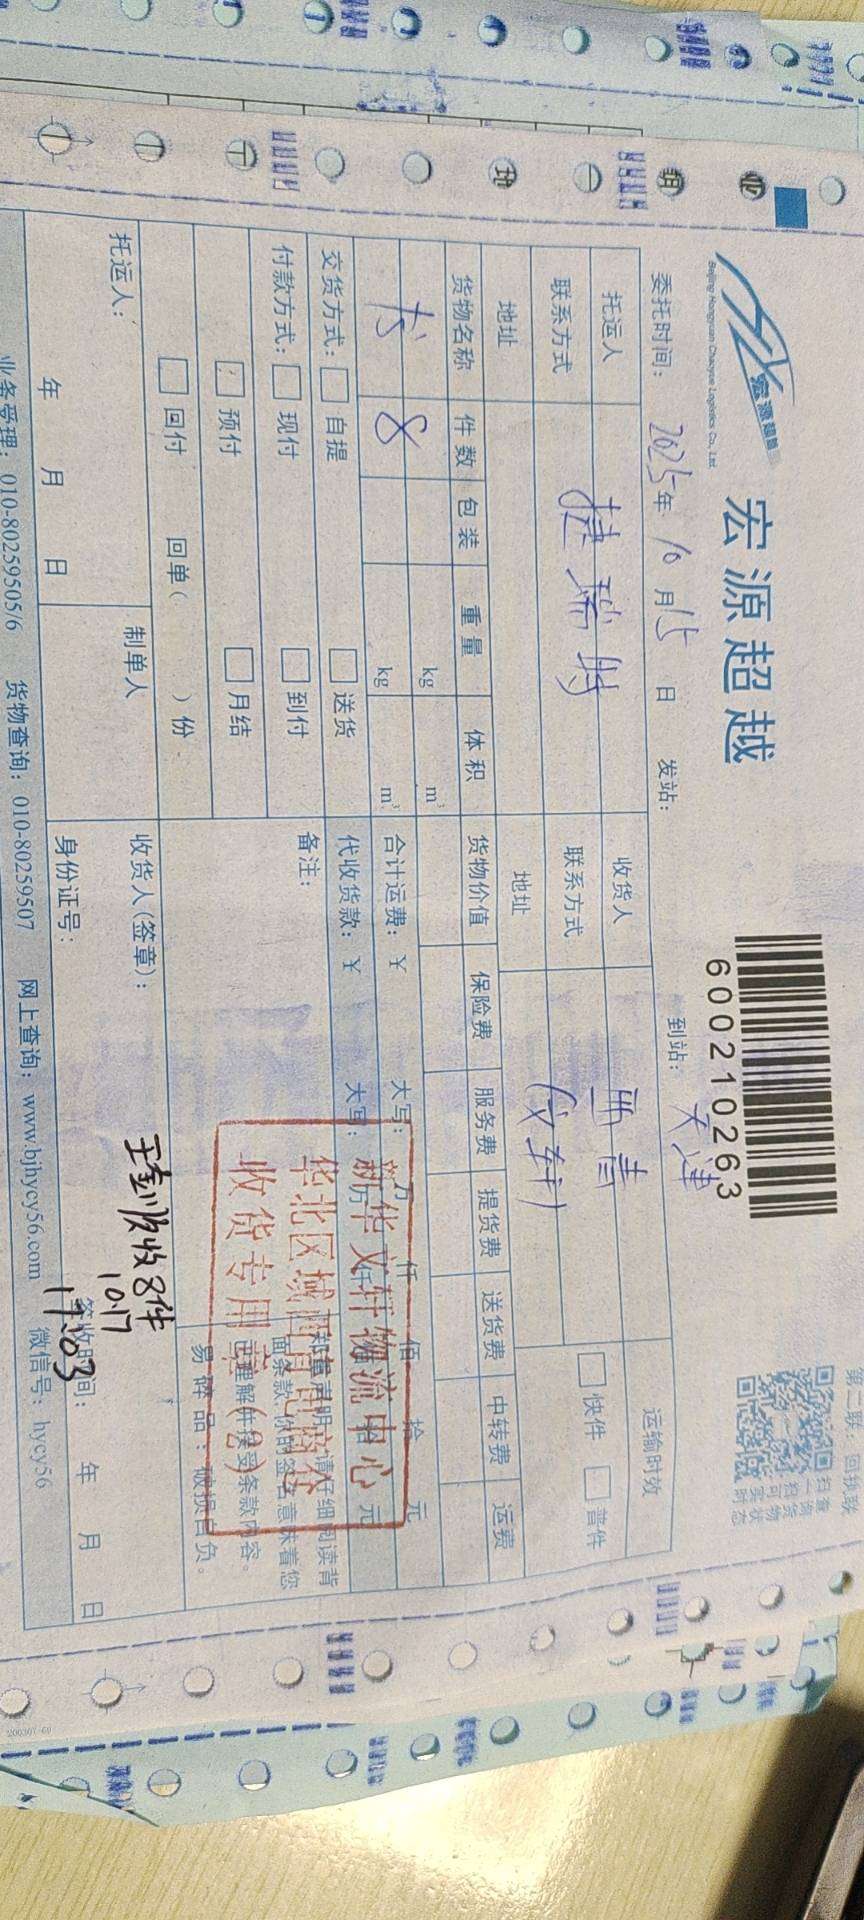 宏源超越
宏源超越
Beijing Hongyuan Chaoyue Logistics Co., Ltd
600210263
第二联：回执联
扫查
一询
扫货
可物
实状
时态
委托时间： 2025年 10月15日 发站： 到站： 天津
托运人 捷瑞特 收货人 西青 运输时效
联系方式 联系方式 (文轩) 快件 普件
地址 地址
货物名称 件数 包装 重量 体积 货物价值 保险费 服务费 提货费 送货费 中转费 运费
书 8 kg m³
kg m³ 合计运费：￥ 大写： 万 仟 佰 拾 元
交货方式： 自提 送货 代收货款：￥ 大写： 万 仟 拾 元
付款方式： 现付 到付 备注：
预付 月结
回付 回单( )份
新华文轩物流中心
华北区域
收货专用章(2)
请仔细阅读背
面条款，你的签名意味着您
已理解并接受条款内容。
易碎品：破损自负。
托运人： 制单人 收货人(签章)：
收8件
10.17
17:03
年 月 日 身份证号： 签收时间： 年 月 日
业务受理：010-80259505/6 货物查询：010-80259507 网上查询：www.bjhycy56.com 微信号：hycy56